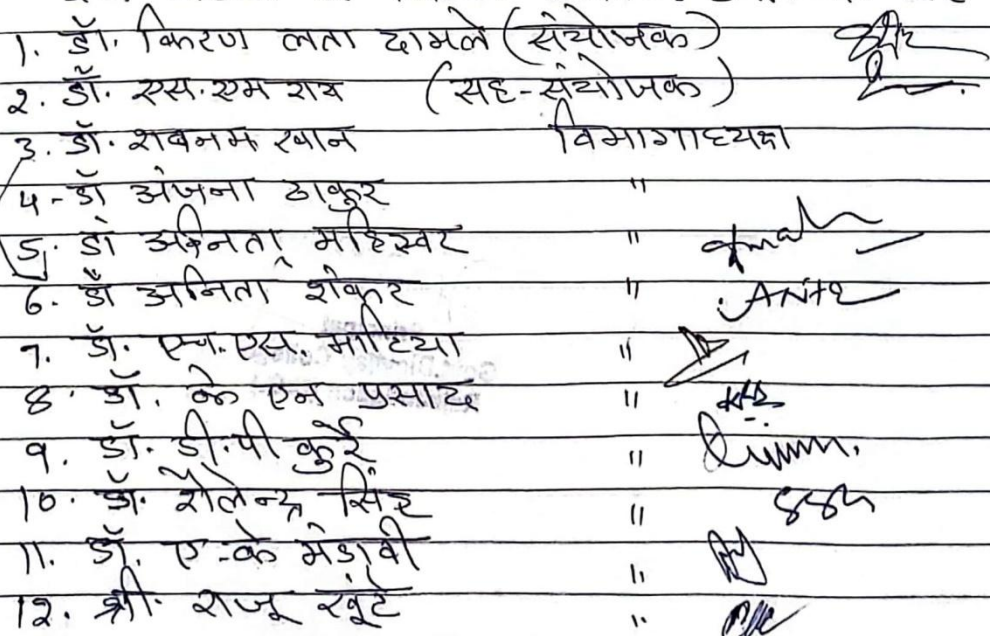 1. डॉ. किरण लता दामले (संयोजक)
2. डॉ. एस.एम राय (सह-संयोजक)
3. डॉ. शबनम खान विभागाध्यक्ष
4- डॉ अंजना ठाकुर "
5. डॉ अनिता महिश्वर "
6. डॉ अनिता शंकर " Anita
7. डॉ. एच.एस. भाटिया "
8. डॉ. के एन प्रसाद "
9. डॉ. डी.पी कुर्रे "
10. डॉ. शैलेन्द्र सिंह "
11. डॉ. ए-के मंडावी "
12. श्री. राजू खूंटे "